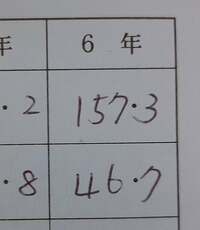 年 6 年
・2 157・3
・8 46・7